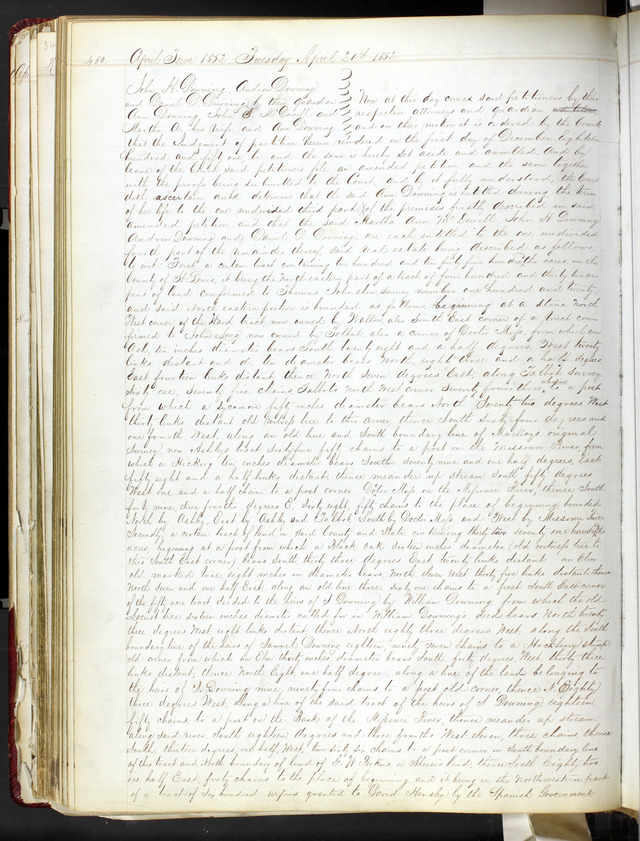 450. April Term 1852. Tuesday April 20th 1852
John H Downing Andrew Downing
and Daniel D Downing by their Guardian
Ann Downing John S. McDowell and
Martha A. his wife and Ann Downing
Now at this day comes said petitioners by their
respective attorneys and Guardian
and on their motion it is ordered by the Court
that the Judgment of partition herein rendered on the first day of December Eighteen
hundred and fifty one, be and the same is hereby set aside and annulled. And by
leave of the Court said petitioners file an amended petition and the same together
with the proofs being submitted to the Court, and by it fully understood, the Court
doth ascertain and determine that the said Ann Downing is entitled during the term
of her life to the one undivided third part of the premises first described in said
amended petition and that the said Martha Ann McDowell, John H Downing
Andrew Downing and Daniel D Downing are each entitled to the one undivided
fourth part of the remainder thereof said real estate being described as follows,
to wit That a certain tract containing two hundred and ten acres in the
County of St Louis, it being the North eastern part of a tract of four hundred and thirty two ar
pens of land confirmed to Thomas Johnston survey number one hundred and twenty
and said North eastern portion is bounded as follows beginning at a stone North
West corner of the Ward tract now owned by Walton also South East corner of a tract con
firmed to John Long now owned by Talbot also a corner of Doctr Moss, from which an
Ash, ten inches diameter bears South twenty eight and a half degrees West twenty
links distant and a do ten diameter bears North eighty three and a half degrees
East fourteen links distant thence North Seven degrees East, along Talbots survey
Sixty one, Seventy five chains Talbots North West corner Seventy four chains to a post
from which a Sycamore fifty inches diameter bears North Twenty two degrees West
thirty links distant old witness tree to this corner thence South Sixty four degrees and
one fourth West, along an old line and South boundary line of Mackays original
Survey now Ashbys tract Sixty five fifty chains to a post on the Missouri River, from
which a Hickory ten inches diameter bears South Seventy nine and one half degrees, East
fifty eight and a half links distant, thence meander up stream South fifty degrees
West one and a half chain to a post corner Doctr Moss on the Missouri River, thence South
forty nine, three fourth degrees E. Sixty eight, fifty chains to the place of beginning bounded
North by Ashby, East by Ashby and Talbot South by Doctr Moss and West by Missouri river
Secondly a certain tract of land in said County and State containing thirty two seventy one hundredths
acres, beginning at a post from which a Black Oak sixteen inches diameter (old witness tree to
this South East corner) bears South thirty three degrees East twenty links distant an Elm
old marked tree, eight inches in diameter bears North Seven West thirty five links distant, thence
North Seven and one half East along an old line three, sixty one chains to a post South East corner
of the fifty acre tract deeded to the heirs of S Downing by William Downing from which the old
Locust tree sixteen inches diameter called for in William Downings deed bears North twenty
three degrees West eight links distant, thence North eighty three degrees West, along the South
boundary line of the heirs of Samuel Downing eighteen, ninety seven chains to a Hackberry stump
old corner from which an Elm thirty inches diameter bears South forty degrees, West, thirty three
links distant, thence North Eight, one half degrees along a line of the land belonging to
the heirs of S Downing nine, ninety four chains to a post old corner, thence N Eighty
three degrees West along a line of the said tract of the heirs of S Downing eighteen
fifty chains to a post on the Bank of the Missouri River, thence meander up stream
along said river South eighteen degrees and three fourths West eleven, three chains, thence
South, thirteen degrees, one half, West, two sixty six chains to a post corner in South boundary line
of this tract and North boundary of land of G. W. Perkins or Shines land, thence South Eighty two
one half East, forty chains to the place of beginning and it being in the Northwestern part
of a tract of Six hundred arpens granted to David Hensley by the Spanish Government